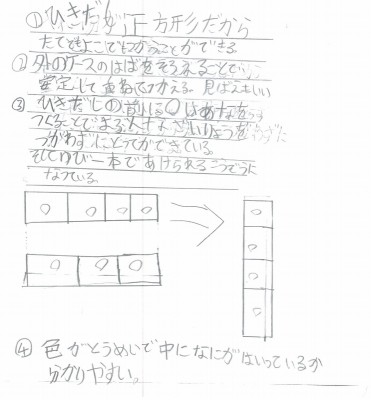 ①ひきだしが正方形だから
たてでもよこでもつかうことができる
②外のケースのはばをそろえることで
安定して重ねてつかえる。見ばえもいい
③ひきだしの前に○いあなを
つくることで
つかわずにとってができている。
そしてゆび一本であけられるこうぞうに
なっている。
④色がとうめいで中になにがはいっているか
分かりやすい。